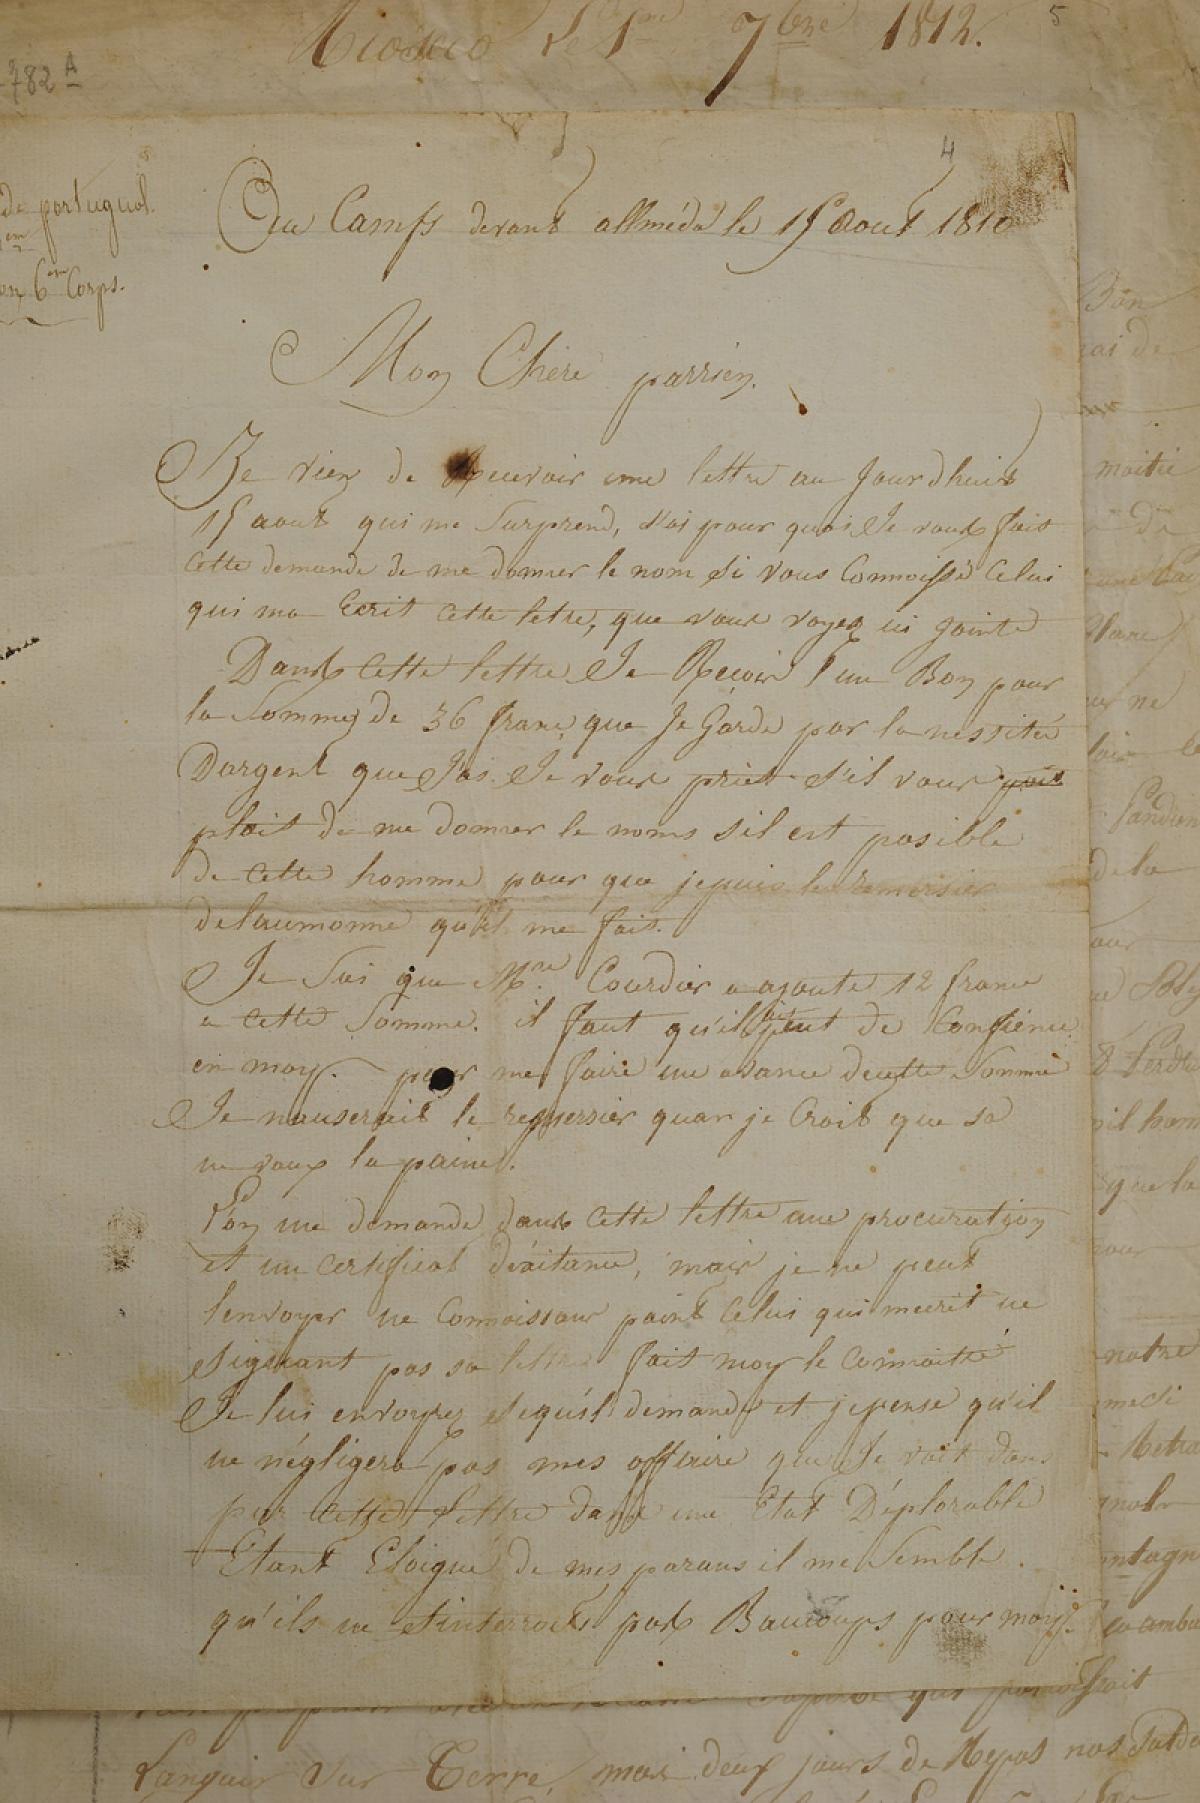 Le 1er 7bre 1812.
5
782 A
4
de portugal.
6em Corps.
Au Camps devant allméda le 15 Aout 1810
Mon Chére parrien.
Je vien de Recevoir une lettre au Jourdhuit
15 aout qui me Surprend, Voi pour quoi Je vous fais
cette demande de me donner le nom Si vous Connoissé Celui
qui ma Ecrit cette letre, que vous voyez ci jointe
Dans cette lettre Je Recois un Bon pour
la Somme de 36 franc, que Je Garde par la nessité
Dargent que J'ai. Je vous priet s'il vous
plait de me donner le noms s'il est posible
de cette homme pour que je puis le remersier
de laumonne qu'il me fait.
Je Sai que Mr. Courdier a ajouté 12 franc
a cette Somme. il faut qu'il ait peut de Confience
en moy. pour me faire une avance de cette Somme
Je nauserait le remersier quar je Croit que sa
ne vaux la paine.
L'on me demande dans cette lettre une procuration
et un certificat d'éxitance, mais je ne peut
lenvoyer ne Connoissant point Celui qui mecrit ne
Signant pas sa lettre fait moy le Connoitté
Je lui envoyrez Se qu'il demande et je pense qu'il
ne négligera pas mes affaire que Je voit dans
par cette lettre dans une Etat Déplorable
Etant Eloigné de mes parans il me Semble
qu'ils ne S'interroes pas Baucoups pour moy.
Bon
moitié
de
ne
de la
8
que la
pour
notre
qui paroissoit
Languir sur Terre, mais deux jours de Repos nos